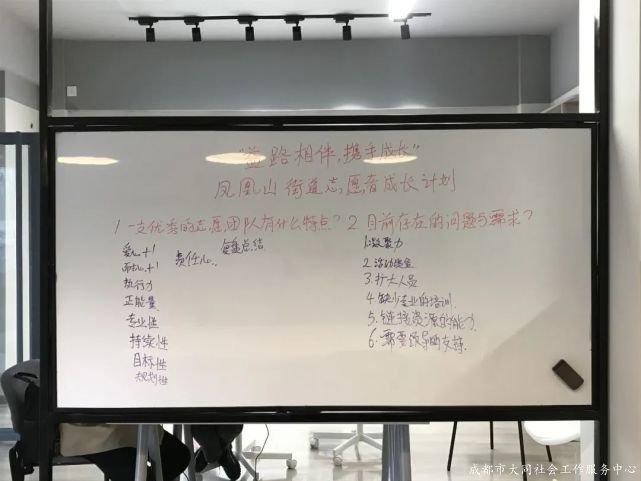 "益路相伴,携手成长"
凤凰山街道志愿者成长计划
1 一支优秀的志愿团队有什么特点?
爱心+1
耐心+1
执行力
正能量
专业性
持续性
目标性
规划性
责任心
复盘总结
2 目前存在的问题与需求?
1.凝聚力
2 活动资金
3.扩大人员
4 缺少专业的培训
5.链接资源的能力
6.需要领导的支持
成都市大同社会工作服务中心